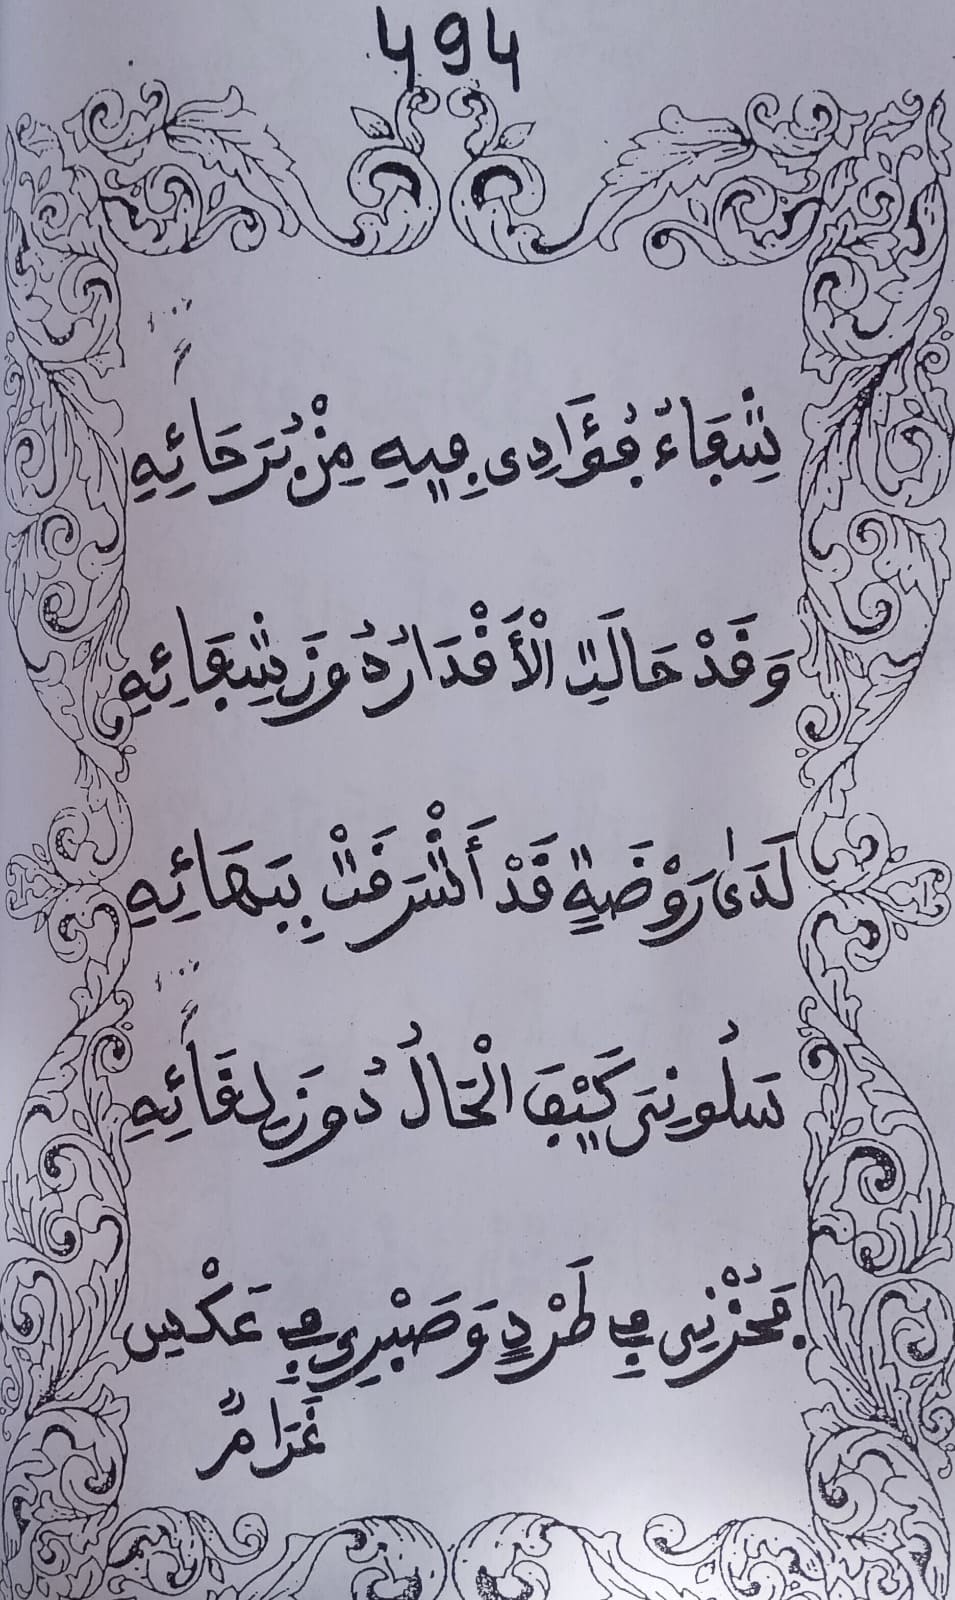 494
شِفَاءُ فُؤَادِى فِيهِ مِنْ بُرَحَائِهِ
وَقَدْ حَالَتِ الْأَقْدَارُ دُونَ شِفَائِهِ
لَدَىٰ رَوْضَةٍ قَدْ أَشْرَقَتْ بِبَهَائِهِ
سَلُونِي كَيْفَ الْحَالُ دُونَ لِقَائِهِ
فَحُزْنِي فِي طَرْدٍ وَصَبْرِي فِي عَكْسِ
غَرَامٌ